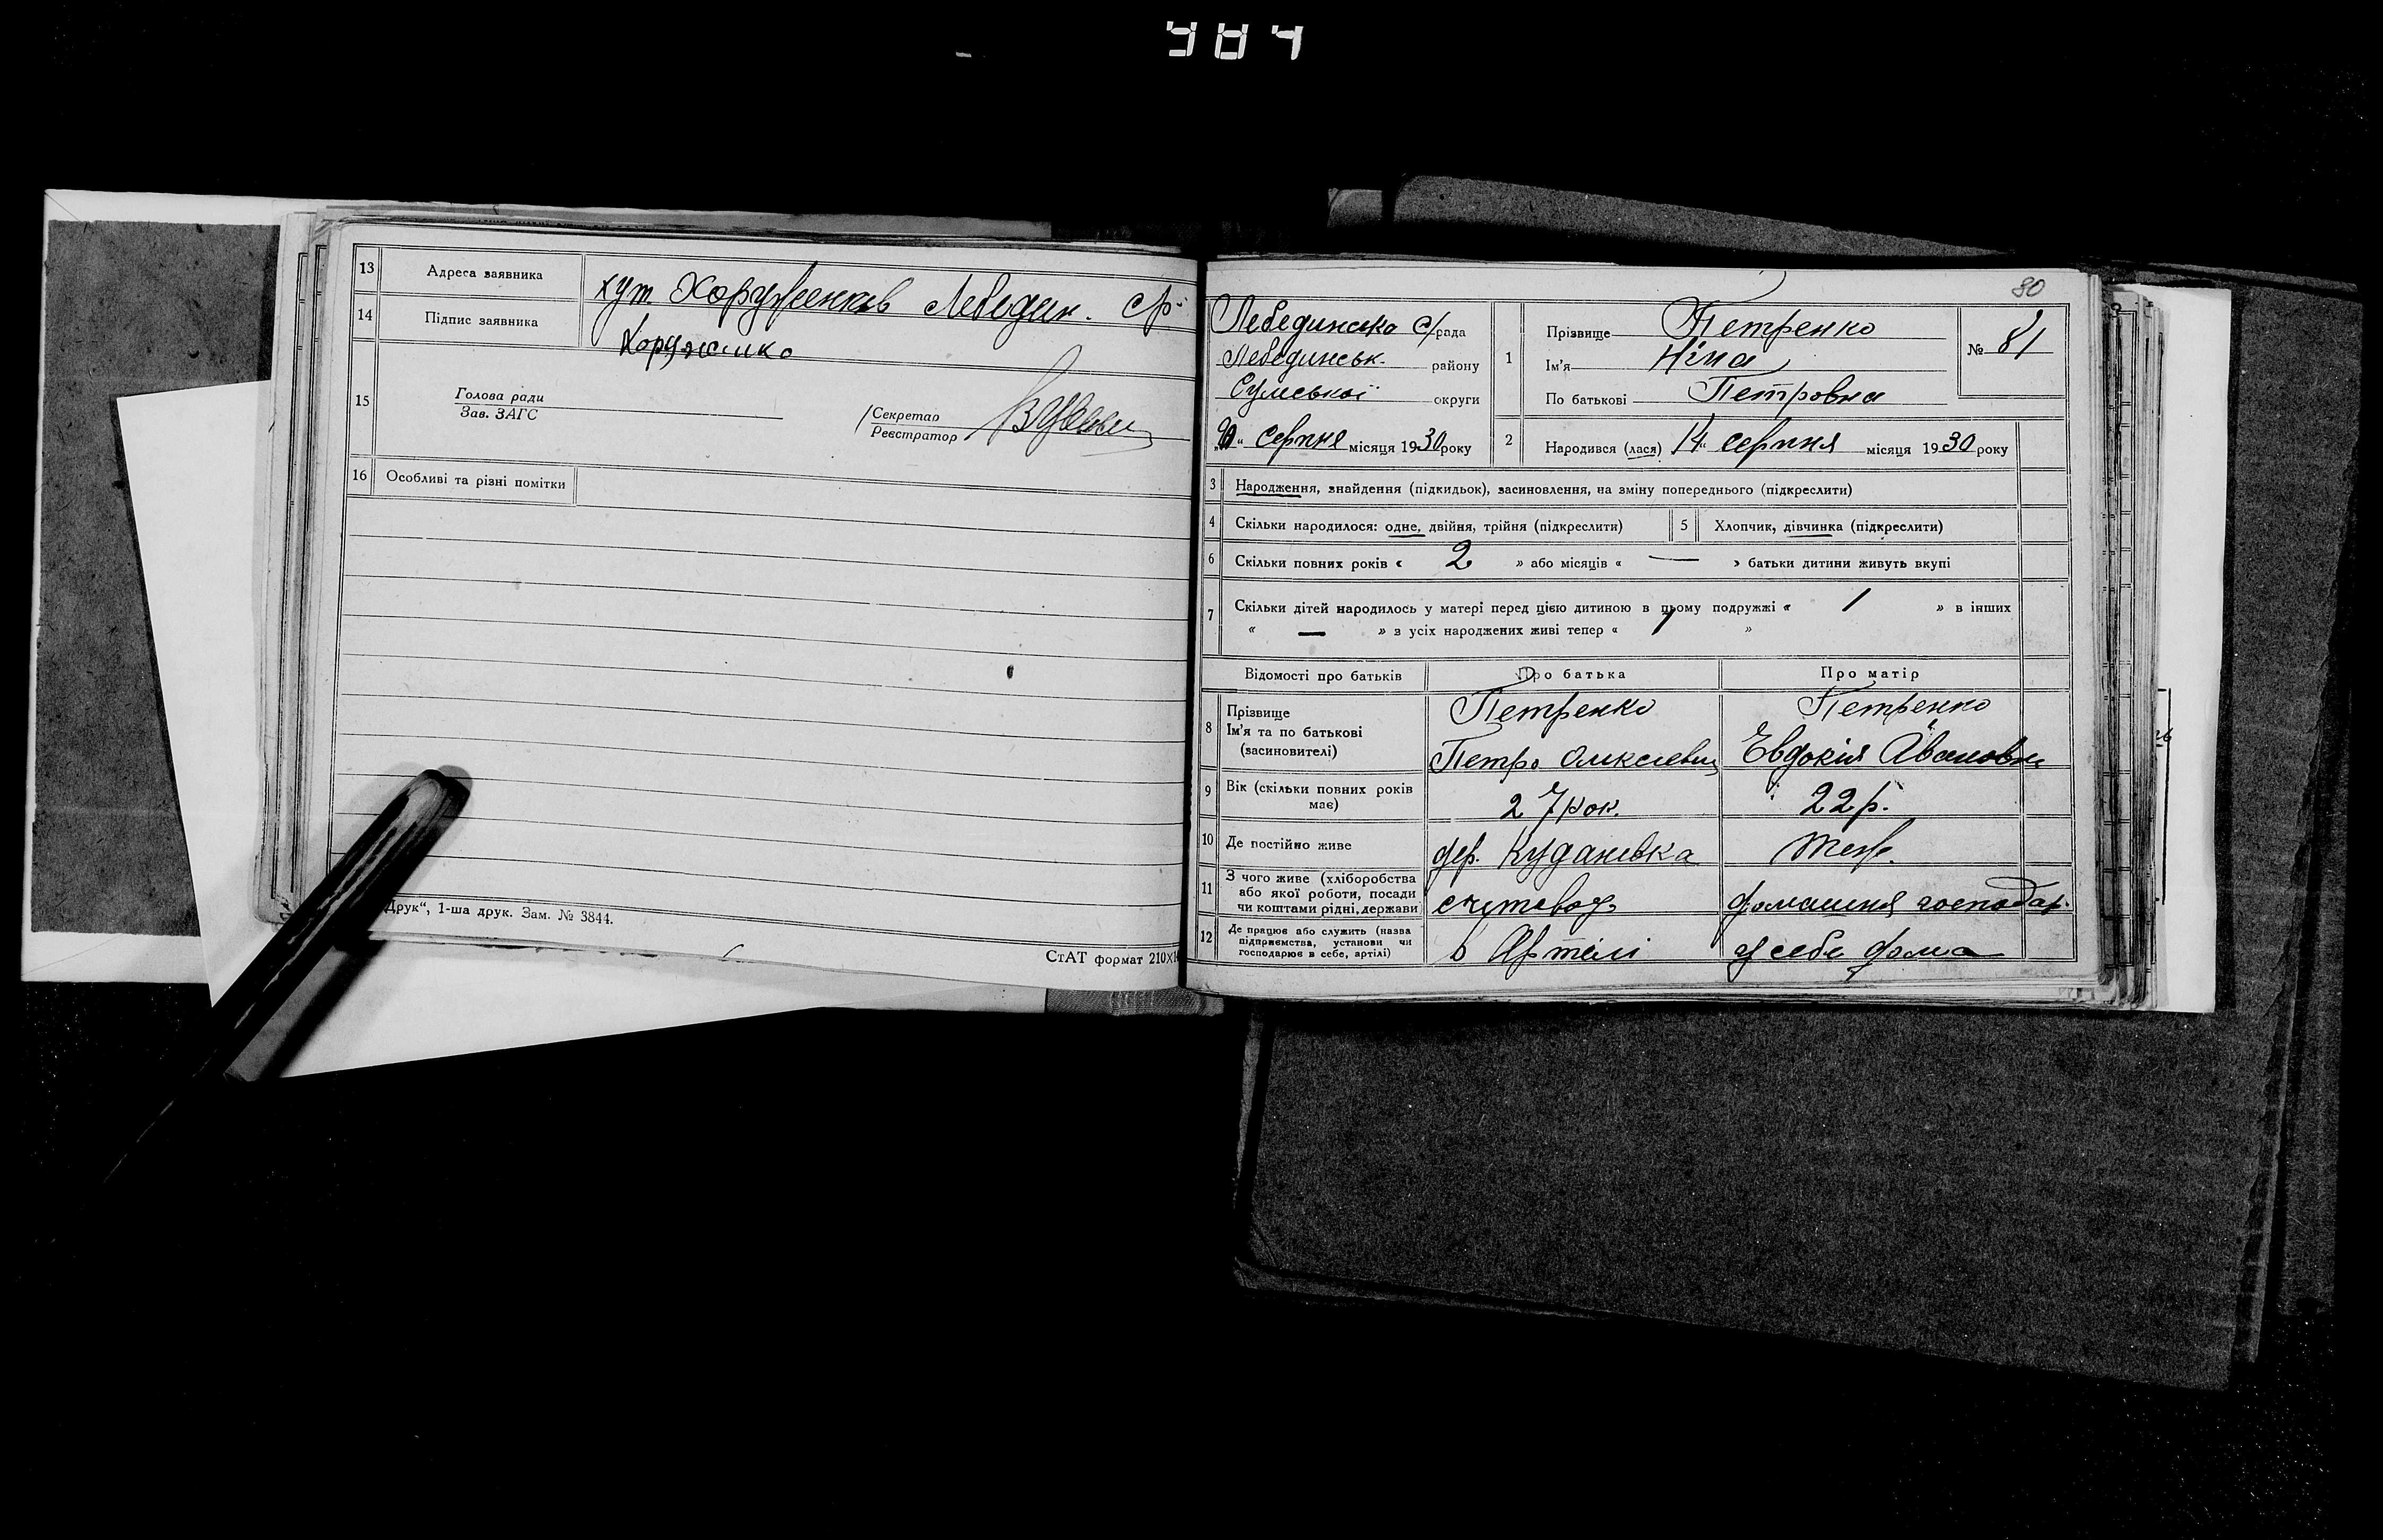 484
13 Адреса заявника хут Хоруженків Лебедин. ср.
14 Підпис заявника Хоруженко
15 Голова ради
Зав. ЗАГС
Секретар
Реєстратор
16 Особливі та різні помітки
Друк“, 1-ша друк. Зам. № 3844.
СтАТ формат 210×1
80
Лебединська С/рада
Лебединськ. району
Сумської округи
серпня місяця 1930 року
1 Прізвище Петренко
Ім'я Ніна
По батькові Петровна
№ 81
2 Народився (лася) 14 „ серпня місяця 1930 року
3 Народження, знайдення (підкидьок), засиновлення, на зміну попереднього (підкреслити)
4 Скільки народилося: одне, двійня, трійня (підкреслити) 5 Хлопчик, дівчинка (підкреслити)
6 Скільки повних років « 2 » або місяців « — » батьки дитини живуть вкупі
7 Скільки дітей народилось у матері перед цією дитиною в цьому подружжі « 1 » в інших
« — » з усіх народжених живі тепер « 1 »
Відомості про батьків Про батька Про матір
8 Прізвище Петренко Петренко
Ім'я та по батькові
(засиновителі) Петро Олексіевич Евдокія Ивановна
9 Вік (скільки повних років
має) 27 рок. 22 р.
10 Де постійно живе дер. Кудановка теж.
11 З чого живе (хліборобства
або якої роботи, посади
чи коштами рідні, держави счетовод домашня господар.
12 Де працює або служить (назва
підприємства, установи чи
господарює в себе, артілі) в Артілі у себе дома